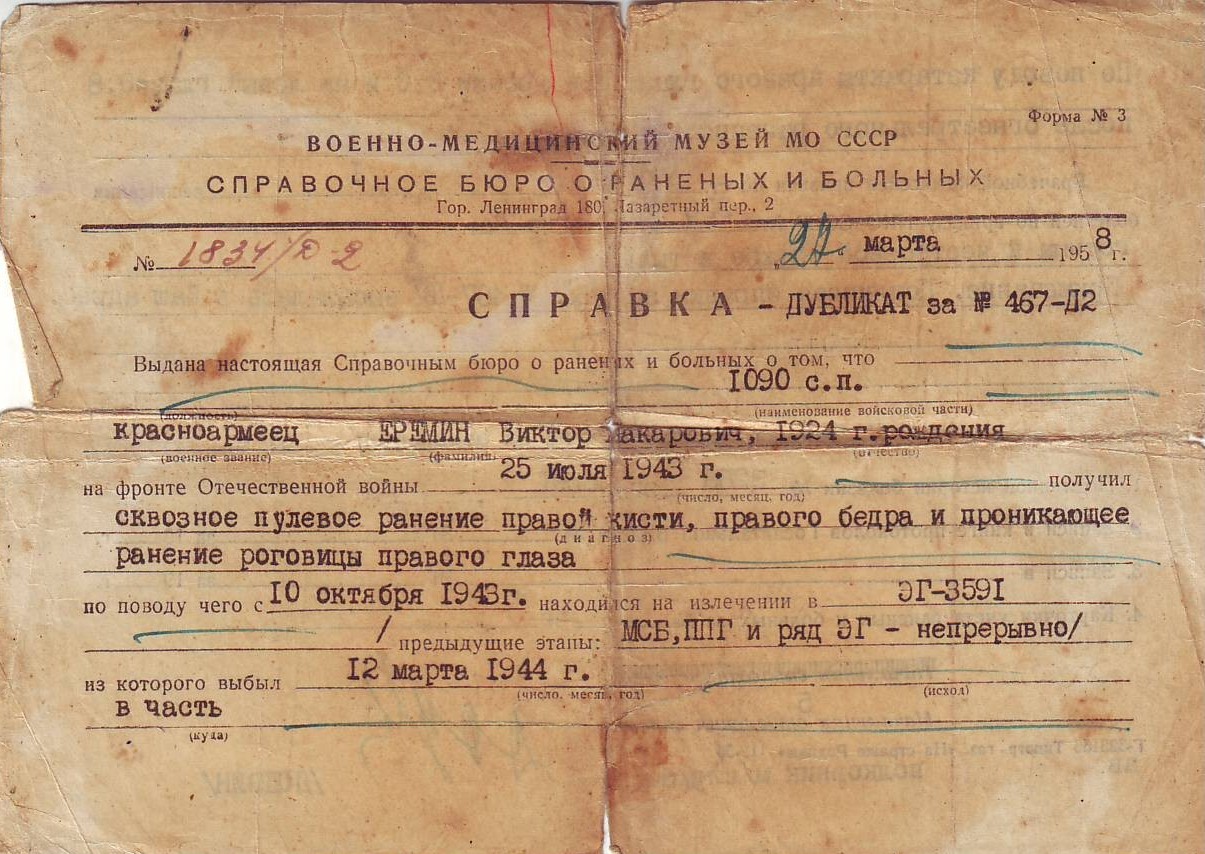 Форма № 3
ВОЕННО-МЕДИЦИНСКИЙ МУЗЕЙ МО СССР
СПРАВОЧНОЕ БЮРО О РАНЕНЫХ И БОЛЬНЫХ
Гор. Ленинград 180, Лазаретный пер., 2
№ 1834/Д-2 „22 марта 1958 г.
СПРАВКА - ДУБЛИКАТ за № 467-Д2
Выдана настоящая Справочным бюро о раненых и больных о том, что
1090 с.п.
(должность) (наименование войсковой части)
красноармеец ЕРЕМИН Виктор Макарович, 1924 г.рождения
(военное звание) (фамилия) (отчество)
на фронте Отечественной войны 25 июля 1943 г. получил
(число, месяц, год)
сквозное пулевое ранение правой кисти, правого бедра и проникающее
(диагноз)
ранение роговицы правого глаза
по поводу чего с 10 октября 1943г. находился на излечении в ЭГ-3591
/ предыдущие этапы: МСБ,ППГ и ряд ЭГ - непрерывно/
из которого выбыл 12 марта 1944 г.
(число, месяц, год) (исход)
в часть
(куда)